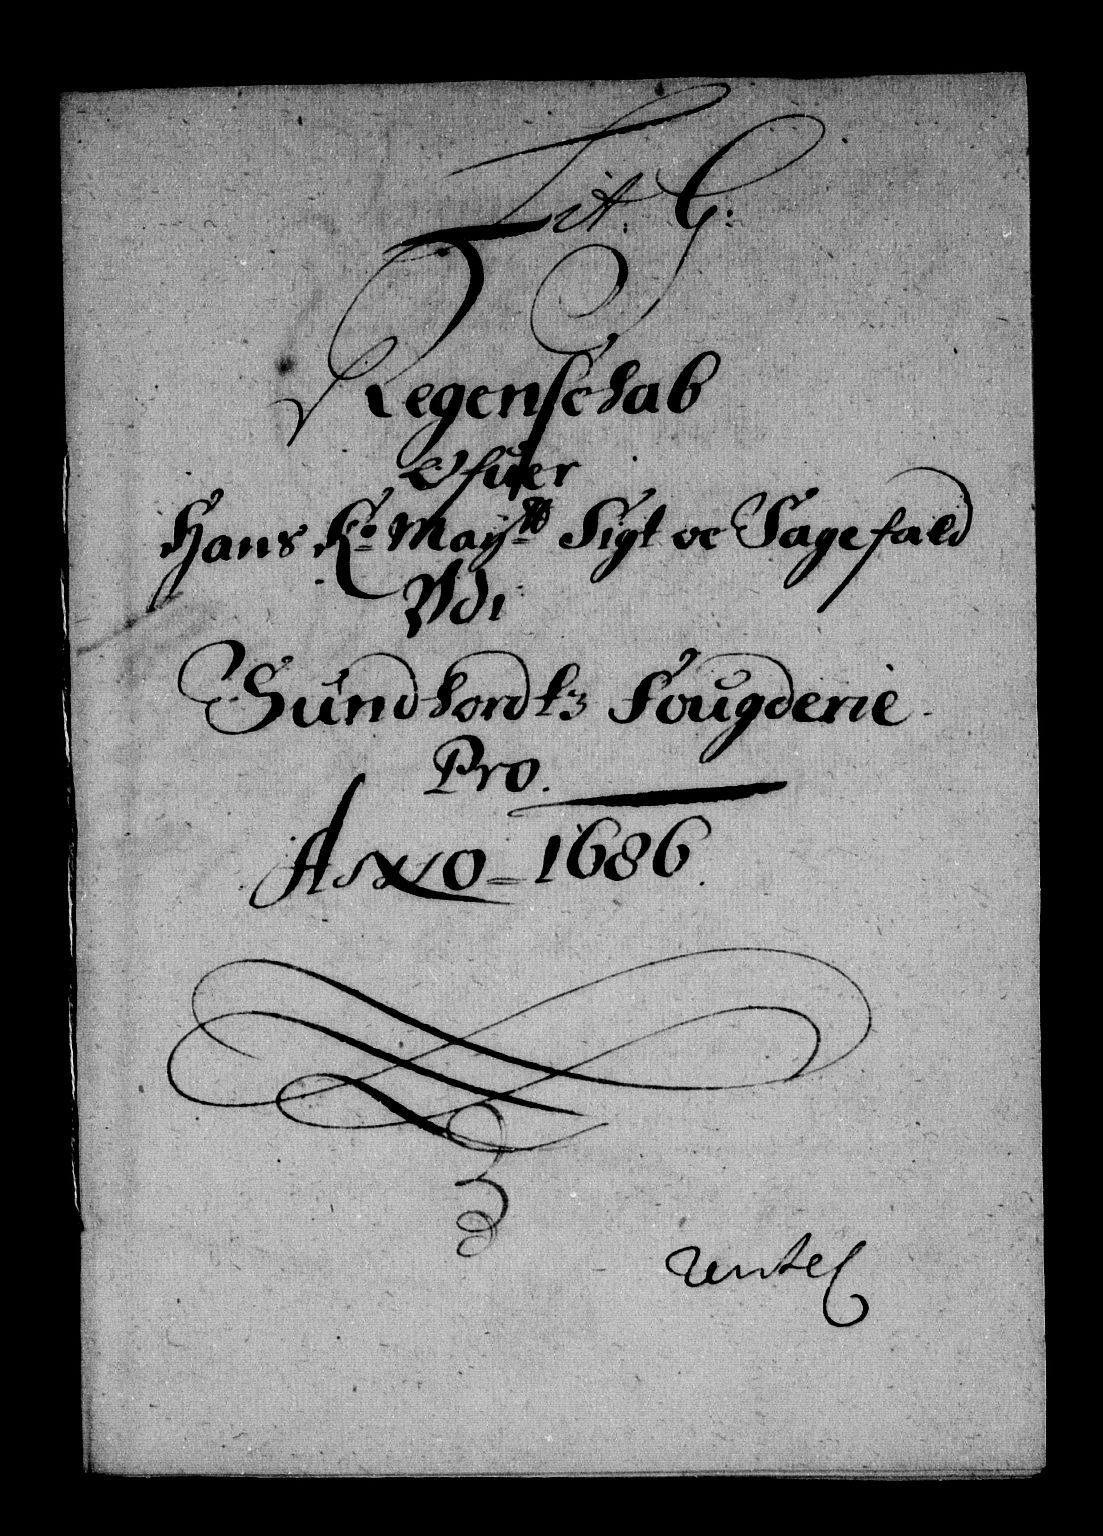 Lit. G:
Regenschab
Ofuer
Hans Ko Maytt Sigt oc Sagefald
Vdi
Sundhordtz Fougderie
Pro.
Anno 1686